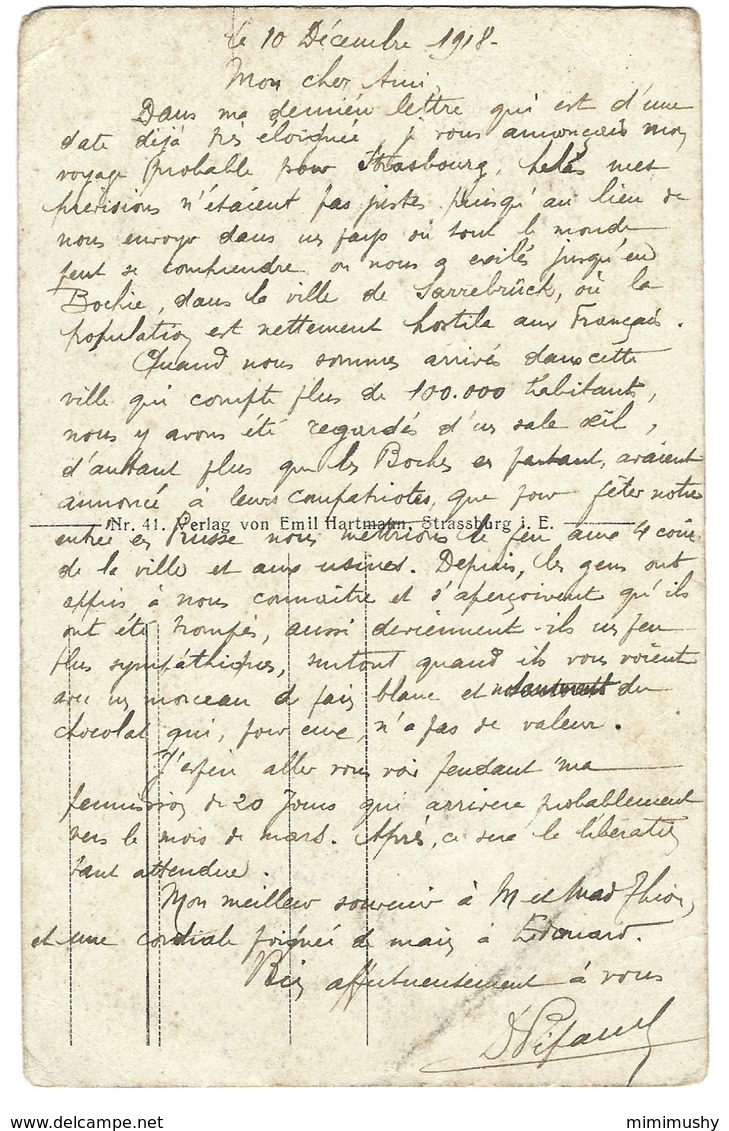 le 10 Décembre 1918-
Mon cher Ami,
Dans ma dernière lettre qui est d'une
date déjà très éloignée je vous annonçais mon
voyage probable pour Strasbourg, helas mes
prévisions n'étaient pas justes puisqu'au lieu de
nous envoyer dans un pays où tout le monde
peut se comprendre on nous a exilés jusqu'en
Bochie, dans la ville de Sarrebrück, où la
population est nettement hostile aux Français.
Quand nous sommes arrivés dans cette
ville qui compte plus de 100.000 habitants,
nous y avons été regardés d'un sale œil,
d'autant plus que les Boches en partant, avaient
annoncé à leurs compatriotes, que pour fêter notre
Nr. 41. Verlag von Emil Hartmann, Strassburg i. E.
entrée en Prusse nous mettrions le feu aux 4 coins
de la ville et aux usines. Depuis, les gens ont
appris à nous connaître et s'aperçoivent qu'ils
ont été trompés, aussi deviennent-ils un peu
plus sympathiques, surtout quand ils vous voient
avec un morceau de pain blanc et du
chocolat qui, pour eux, n'a pas de valeur.
J'espère aller vous voir pendant ma
permission de 20 jours qui arrivera probablement
vers le mois de mars. Après, ce sera la libération
tant attendue.
Mon meilleur souvenir à M et Mad
et une cordiale poignée de main à Edouard.
Bien affectueusement à vous
mimimushy